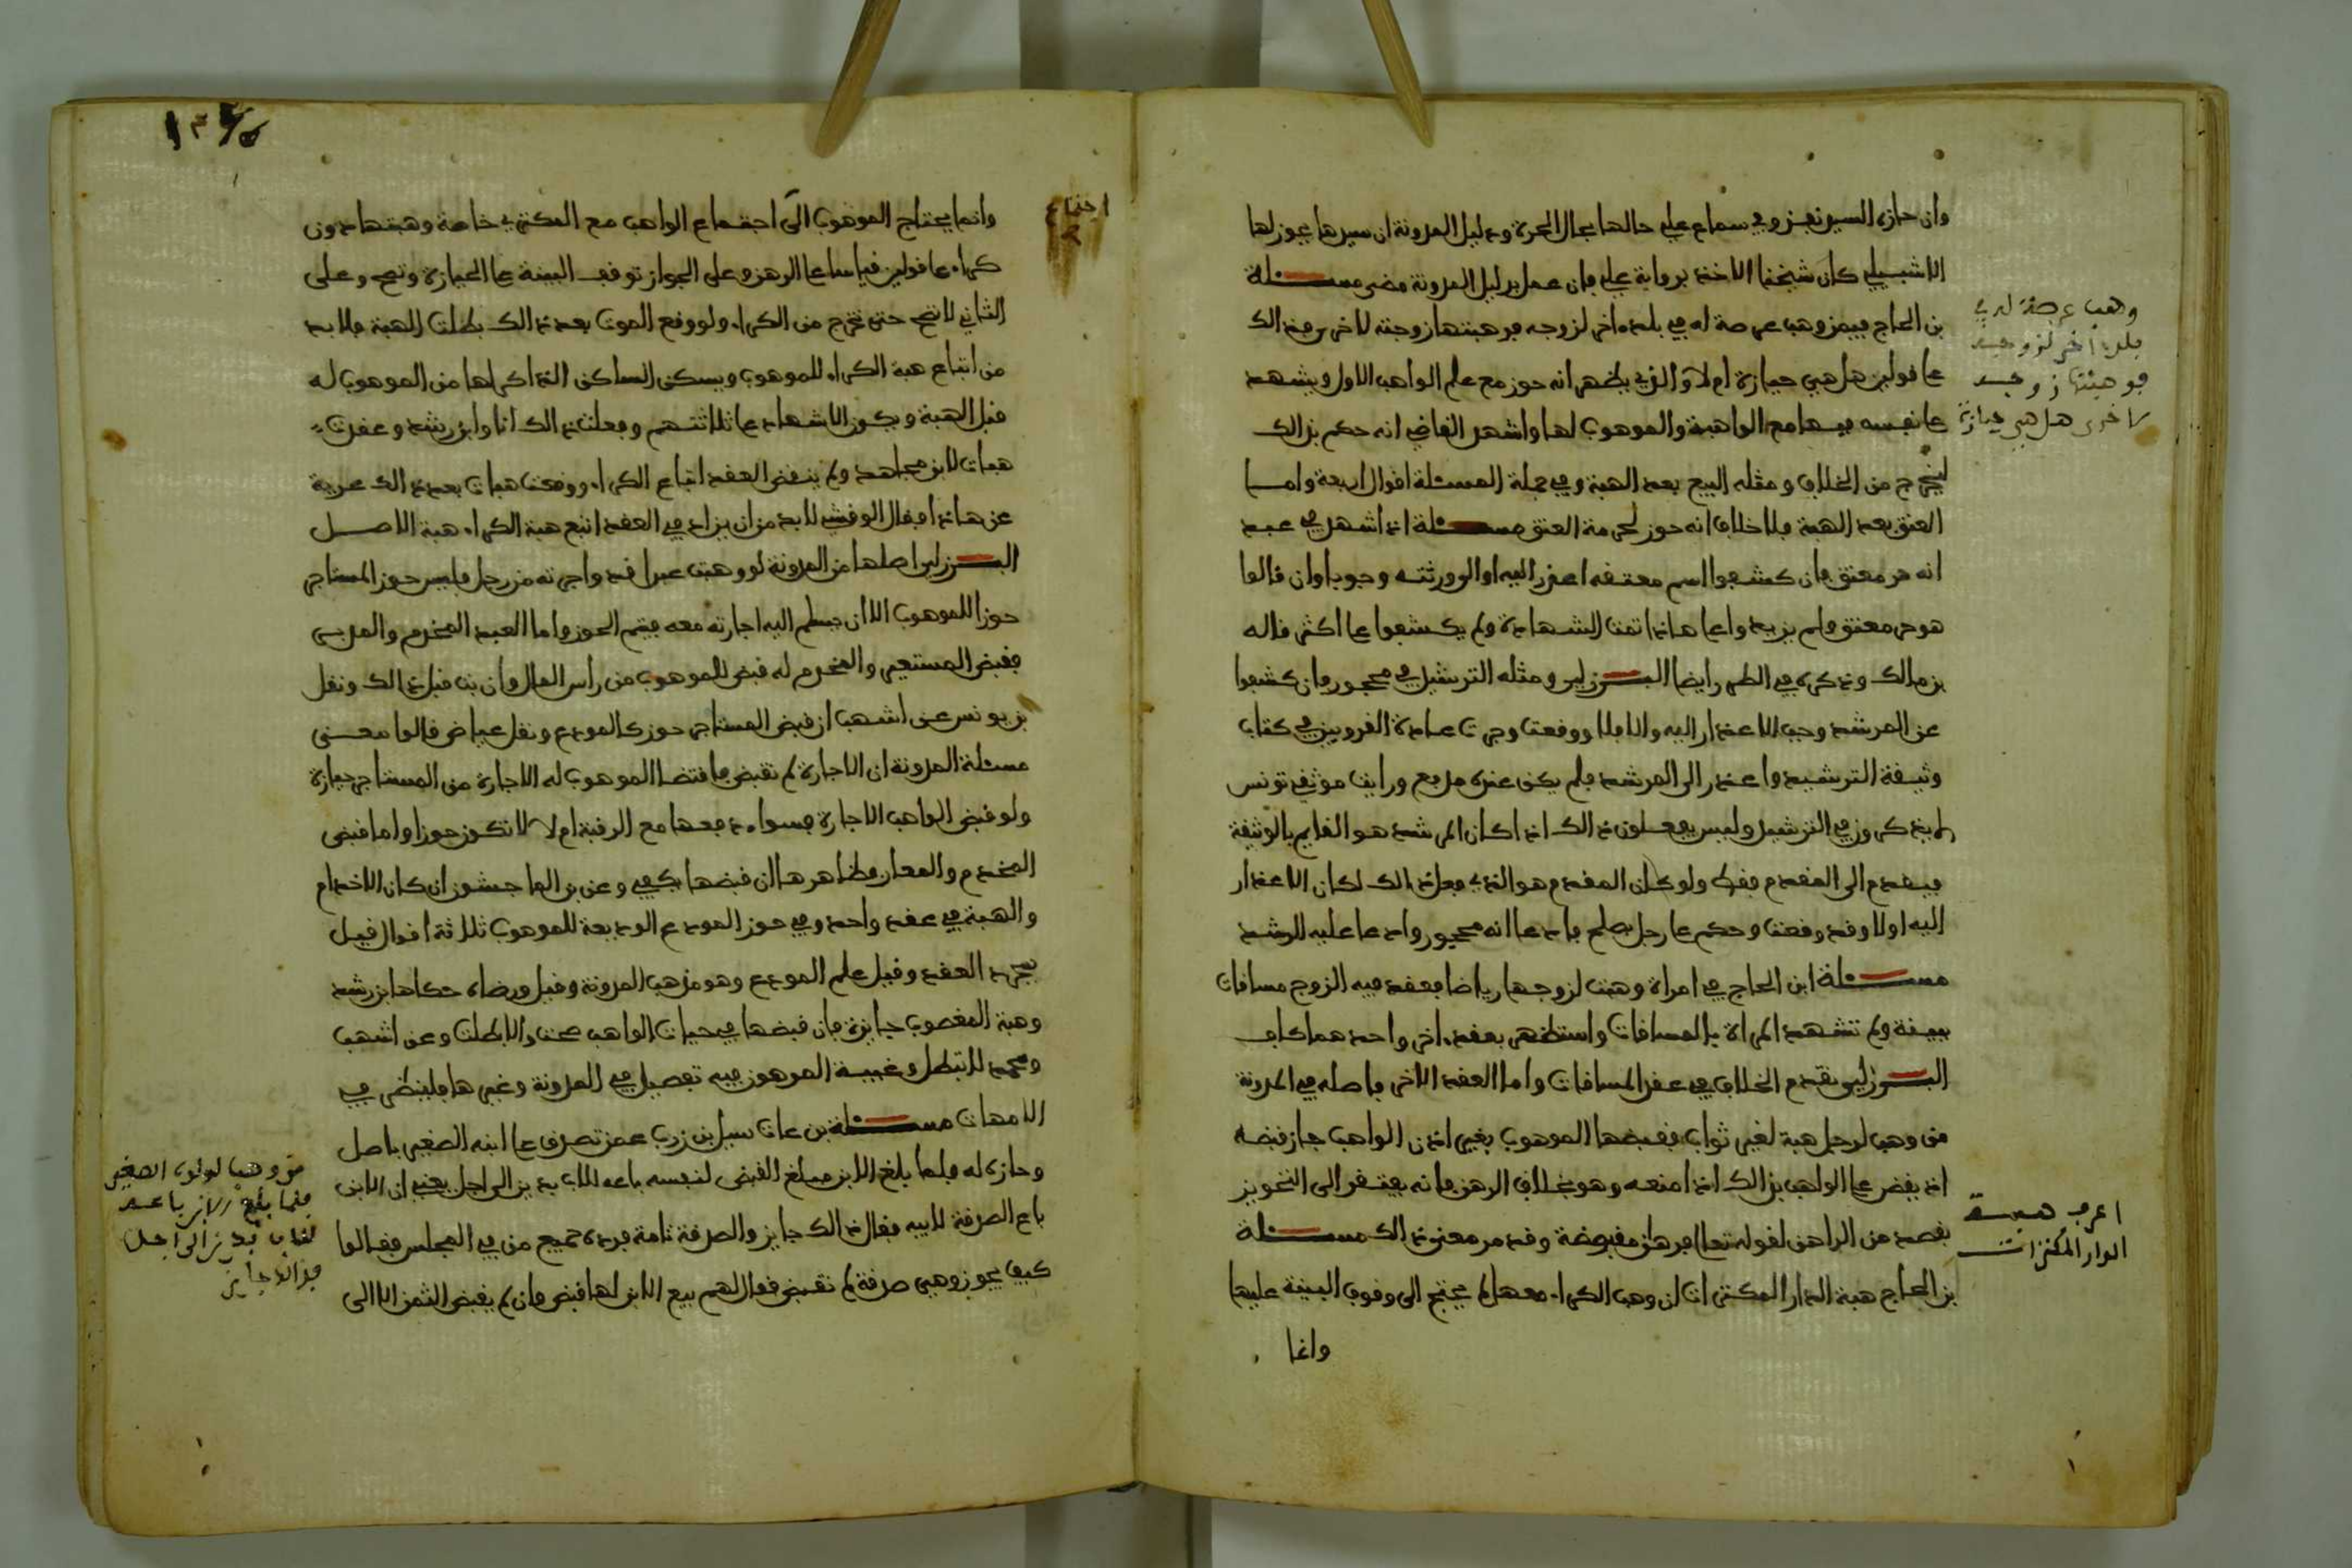 وان حازه السيد نفذ وفي سماع على حالها بحال الحرة ودليل المدونة ان سيدها يحوز لها
الاشبيلي كان شيخنا الاخذ برواية على فان عمل بدليل المدونة مضى مسئلة
بن الحاج فيمن وهب عرصة له في بلده اخر لزوجه فوهبتها زوجته لاخر من ذالك
على قولين هل هي حيازة ام لا والذي يظهر انه حوز مع علم الواهب الاول ويشهد
على نفسه فيها مع الواهبة والموهوب لها واشهد القاضي انه حكم بذالك
ليخرج من الخلاف ومثله البيع بعد الهبة وفي جملة المسئلة اقوال اربعة واما
العتق بعد الهبة فلا خلاف انه حوز لحرمة العتق مسئلة اذا شهد في عبد
انه حر معتق فان كشفوا اسم معتقه اعذر اليه او الى ورثته وجوبا وان قالوا
هو حر معتق فلم يزيدوا على هاذا تمت الشهادة ولم يكشفوا على اكثر قاله
بن مالك وذكره في الطرر ايضا البرزلي ومثله الترشيد في محجور فان كشفوا
عن المرشد وجب الاعذار اليه والا فلا ووقعت وجرت عادة القرويين في كتاب
وثيقة الترشيد واعذر الى المرشد فلم يكن عنده مدفع ورايت موثقي تونس
لم يذكرون في الترشيد وليس يفعلون ذالك اذا كان المرشد هو القايم بالوثيقة
فيقدم الى المقدم فقط ولو كان المقدم هو الذي فعل ذالك لكان الاعذار
اليه اولا وقد وقعت وحكم على رجل بظلم فادعا انه محجور وادعا عليه الرشد
مسئلة ابن الحاج في امراة وهبت لزوجها رياضا فعقد فيه الزوج مسافات
ببينة ولم تشهد المراة بالمسافات واستظهر بعقد اخر واحد هما كاف
البرزلي تقدم الخلاف في عقد المسافات واما العقد الاخر فاصله في المدونة
من وهب لرجل هبة لغير ثواب فقبضها الموهوب بغير اذن الواهب جاز قبضه
اذ يقضى على الواهب بذالك اذا منعه وهو بخلاف الرهن فانه يفتقر الى التحويز
بقصد من الراهن لقوله تعالى فرهان مقبوضة وقد مر معنى ذالك مسئلة
بن الحاج هبة الدار المكترات ان وهب الكراء معها لم يحتج الى وقوف البينة عليها
وانما
وهب عرصة له في
بلده اخر لزوجه
فوهبتها زوجه
لاخرى هل هي حيازة
اعرف هبة
الدار المكترات
اجتماع
وانما يحتاج الموهوب الى اجتماع الواهب مع المكتري خاصة وهبتها دون
كراء على قولين قياسا على الرهن وعلى الجواز توقف البينة على الحيازة وتصح وعلى
الثاني لا تصح حتى تخرج من الكراء ولو وقع الموت بعد ذالك بطلت الهبة فلا بد
من اتباع هبة الكراء للموهوب ويسكن الساكن الذي اكراها من الموهوب له
قبل الهبة ويكون الاشهاد على ثلاثتهم وفعلت ذالك انا وابن رشد وعقدت
هبات لابن مجاهد ولم ينقض العقد اتباع الكراء ووقعت هبات بعد ذالك عرية
عن هاذا فقال الوقشي لا بد من ان يزاد في العقد اتبع هبة الكراء هبة الاصل
البرزلي اصلها من المدونة لو وهبت عبدا قد واجرته من رجل فليس حوز المستاجر
حوزا للموهوب الا ان يسلم اليه اجارته معه فيتم الحوز واما العبد المخدم والمدبر
فقبض المستعير والمخدم له قبض للموهوب من راس المال وان بت قبل ذالك ونقل
بن يونس عن اشهب ان قبض المستاجر حوز كالمودع ونقل عياض قالوا معنى
مسئلة المدونة ان الاجارة لم تقبض فاقتضا الموهوب له الاجارة من المستاجر حيازة
ولو قبض الواهب الاجارة فسواء دفعها مع الرقبة ام لا لا تكون حوزا واما قبض
المخدم والمعار فظاهرها ان قبضها يكفي وعن بن الماجشون ان كان الاخدام
والهبة في عقد واحد وفي حوز المودع الوديعة للموهوب ثلاثة اقوال قيل
بمجرد العقد وقيل علم المودع وهو مذهب المدونة وقيل ورضاه حكاها بن رشد
وهبة المغصوب جايزة فان قبضها في حيات الواهب صحت والا بطلت وعن اشهب
ومحمد لا تبطل وغيبة المرهون فيه تفصيل في المدونة وغيرها فلينظر في
الامهات مسئلة بن عات سيل بن زرب عمن تصدق على ابنه الصغير باصل
وحازه له فلما بلغ الابن مبلغ القبض لنفسه باعه للاب بدين الى اجل يعني ان الابن
باع الصدقة لابيه فقال ذالك جايز والصدقة تامة فرده جميع من في المجلس فقالوا
كيف يجوز وهي صدقة لم تقبض فقال لهم بيع الابن لها قبض وان لم يقبض الثمن الا الى
من وهب لولده الصغير
فلما بلغ الابن باعه
للاب بدين الى اجل
فذالك جايز